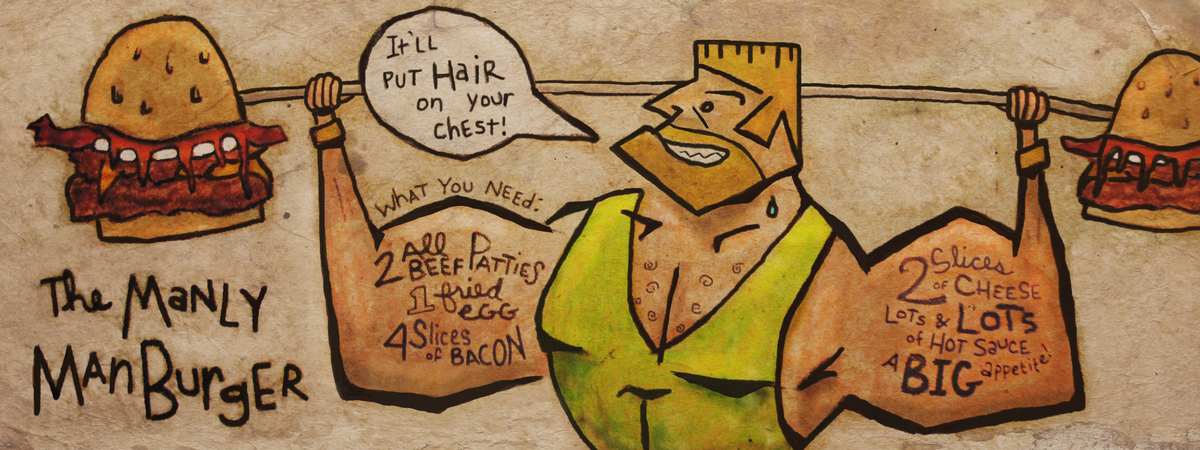 It'll
PUT HaiR
on your
chEst!
WHAT YOU NEEd:
2 All
BEEF PATTIES
1 fried
eGG
4 Slices
of BACON
2 Slices
OF CHEESE
LoTs & LoTs
of HOT SauCE
A BIG appetite!
The MaNLY
MAn BurgER